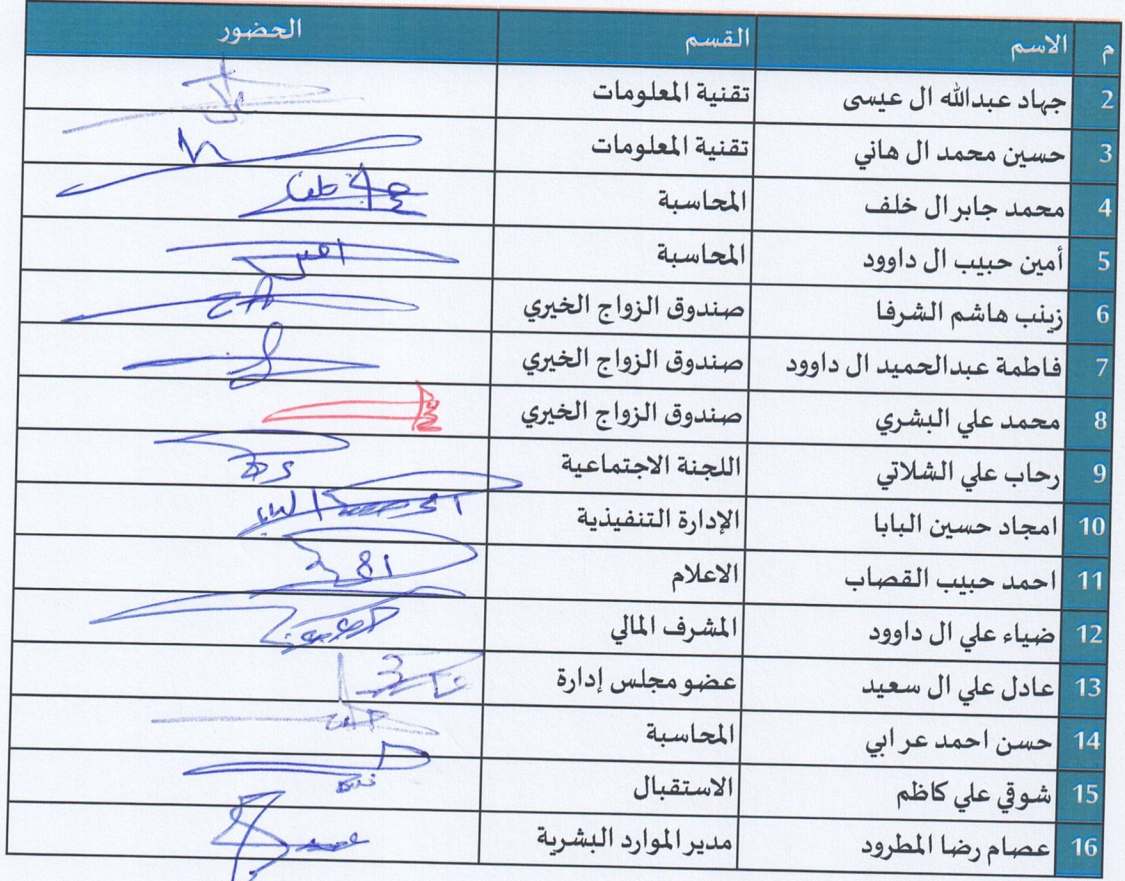 م الاسم القسم الحضور
2 جهاد عبدالله ال عيسى تقنية المعلومات
3 حسين محمد ال هاني تقنية المعلومات
4 محمد جابر ال خلف المحاسبة
5 أمين حبيب ال داوود المحاسبة
6 زينب هاشم الشرفا صندوق الزواج الخيري
7 فاطمة عبدالحميد ال داوود صندوق الزواج الخيري
8 محمد علي البشري صندوق الزواج الخيري
9 رحاب علي الشلاتي اللجنة الاجتماعية
10 امجاد حسين البابا الإدارة التنفيذية
11 احمد حبيب القصاب الاعلام
12 ضياء علي ال داوود المشرف المالي
13 عادل علي ال سعيد عضو مجلس إدارة
14 حسن احمد عرابي المحاسبة
15 شوقي علي كاظم الاستقبال
16 عصام رضا المطرود مدير الموارد البشرية